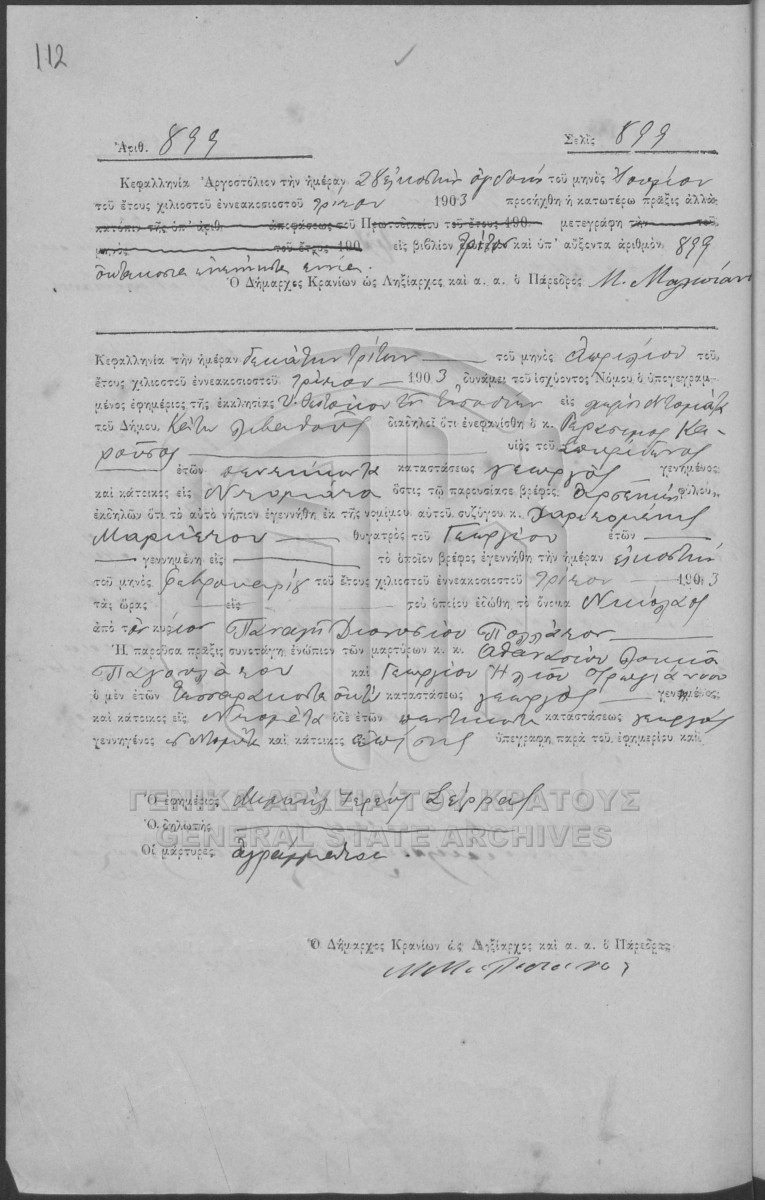 112
Ἀριθ. 899 Σελὶς 899
Κεφαλληνία Ἀργοστόλιον τὴν ἡμέραν 28 εἰκοστὴν ὀγδοὴν τοῦ μηνὸς Ἰουνίου
τοῦ ἔτους χιλιοστοῦ ἐννεακοσιοστοῦ τρίτου 1903 προσήχθη ἡ κατωτέρω πρᾶξις ἀλλὰ
κατόπιν τῆς ὑπ' ἀριθ. ἀποφάσεως τοῦ Πρωτοδικείου τοῦ ἔτους 190 μετεγράφη τὴν τοῦ
μηνὸς τοῦ ἔτους 190 εἰς βιβλίον τρίτον καὶ ὑπ' αὔξοντα ἀριθμὸν 899
ὀκτακόσια ἐνενήντα ἐννέα.
Ὁ Δήμαρχος Κρανίων ὡς Ληξίαρχος καὶ α. α. ὁ Πάρεδρος Μ.
Κεφαλληνία τὴν ἡμέραν δεκάτην τρίτην τοῦ μηνὸς Ἀπριλίου τοῦ
ἔτους χιλιοστοῦ ἐννεακοσιοστοῦ τρίτου 1903 δυνάμει τοῦ ἰσχύοντος Νόμου ὁ ὑπογεγραμ-
μένος ἐφημέριος τῆς ἐκκλησίας Ὑ. Θεοτόκου τῶν Εἰσοδίων εἰς χωρίον Ντομάτα
τοῦ Δήμου Κάτω Λιβαθοῦς διαδηλεῖ ὅτι ἐνεφανίσθη ὁ κ. Γεράσιμος Κα-
ροῦσος υἱὸς τοῦ Σπυρίδωνος
ἐτῶν πενεῆντα καταστάσεως γεωργὸς γενημένος
καὶ κάτοικος εἰς Ντομάτα ὅστις τῷ παρουσίασε βρέφος Ἀρσενικοῦ φύλου
ἐκδηλῶν ὅτι τὸ αὐτὸ νήπιον ἐγεννήθη ἐκ τῆς νομίμου αὐτοῦ συζύγου κ. Χαριτομένης
θυγατρὸς τοῦ Γεωργίου ἐτῶν
γεννημένη εἰς τὸ ὁποῖον βρέφος ἐγεννήθη τὴν ἡμέραν εἰκοστὴν
τοῦ μηνὸς Φεβρουαρίου τοῦ ἔτους χιλιοστοῦ ἐννεακοσιοστοῦ τρίτου 1903
τὰς ὥρας εἰς τοῦ ὁποίου ἐδώθη τὸ ὄνομα Νικόλαος
ἀπὸ τὸν κύριον Παναγῆ Διονυσίου Πολλάτον
Ἡ παροῦσα πρᾶξις συνετάγη ἐνώπιον τῶν μαρτύρων κ. κ. Ἀθανασίου Λουκᾶ
Παγουλάτου καὶ Γεωργίου Ἠλίου
ὁ μὲν ἐτῶν τεσσαράκοντα ὀκτὼ καταστάσεως γεωργὸς γενημένος
καὶ κάτοικος εἰς Ντομάτα ὁ δὲ ἐτῶν πεντήκοντα καταστάσεως γεωργὸς
γεννηγένος κάτοικος ἐπίσης ὑπεγράφη παρὰ τοῦ ἐφημερίου καὶ
Ὁ ἐφημέριος Μιχαὴλ Ἱερεὺς Σέρρας
Ὁ δηλωτὴς
Οἱ μάρτυρες ἀγράμματοι.
Ὁ Δήμαρχος Κρανίων ὡς Ληξίαρχος καὶ α. α. ὁ Πάρεδρος
ΓΕΝΙΚΑ ΑΡΧΕΙΑ ΤΟΥ ΚΡΑΤΟΥΣ
GENERAL STATE ARCHIVES